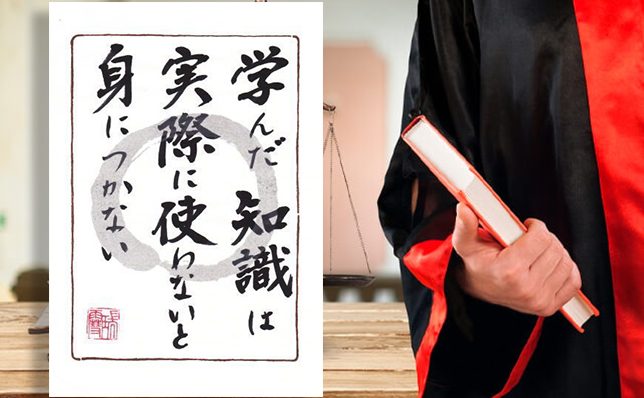 学んだ 知識は
実際に使わないと
身につかない